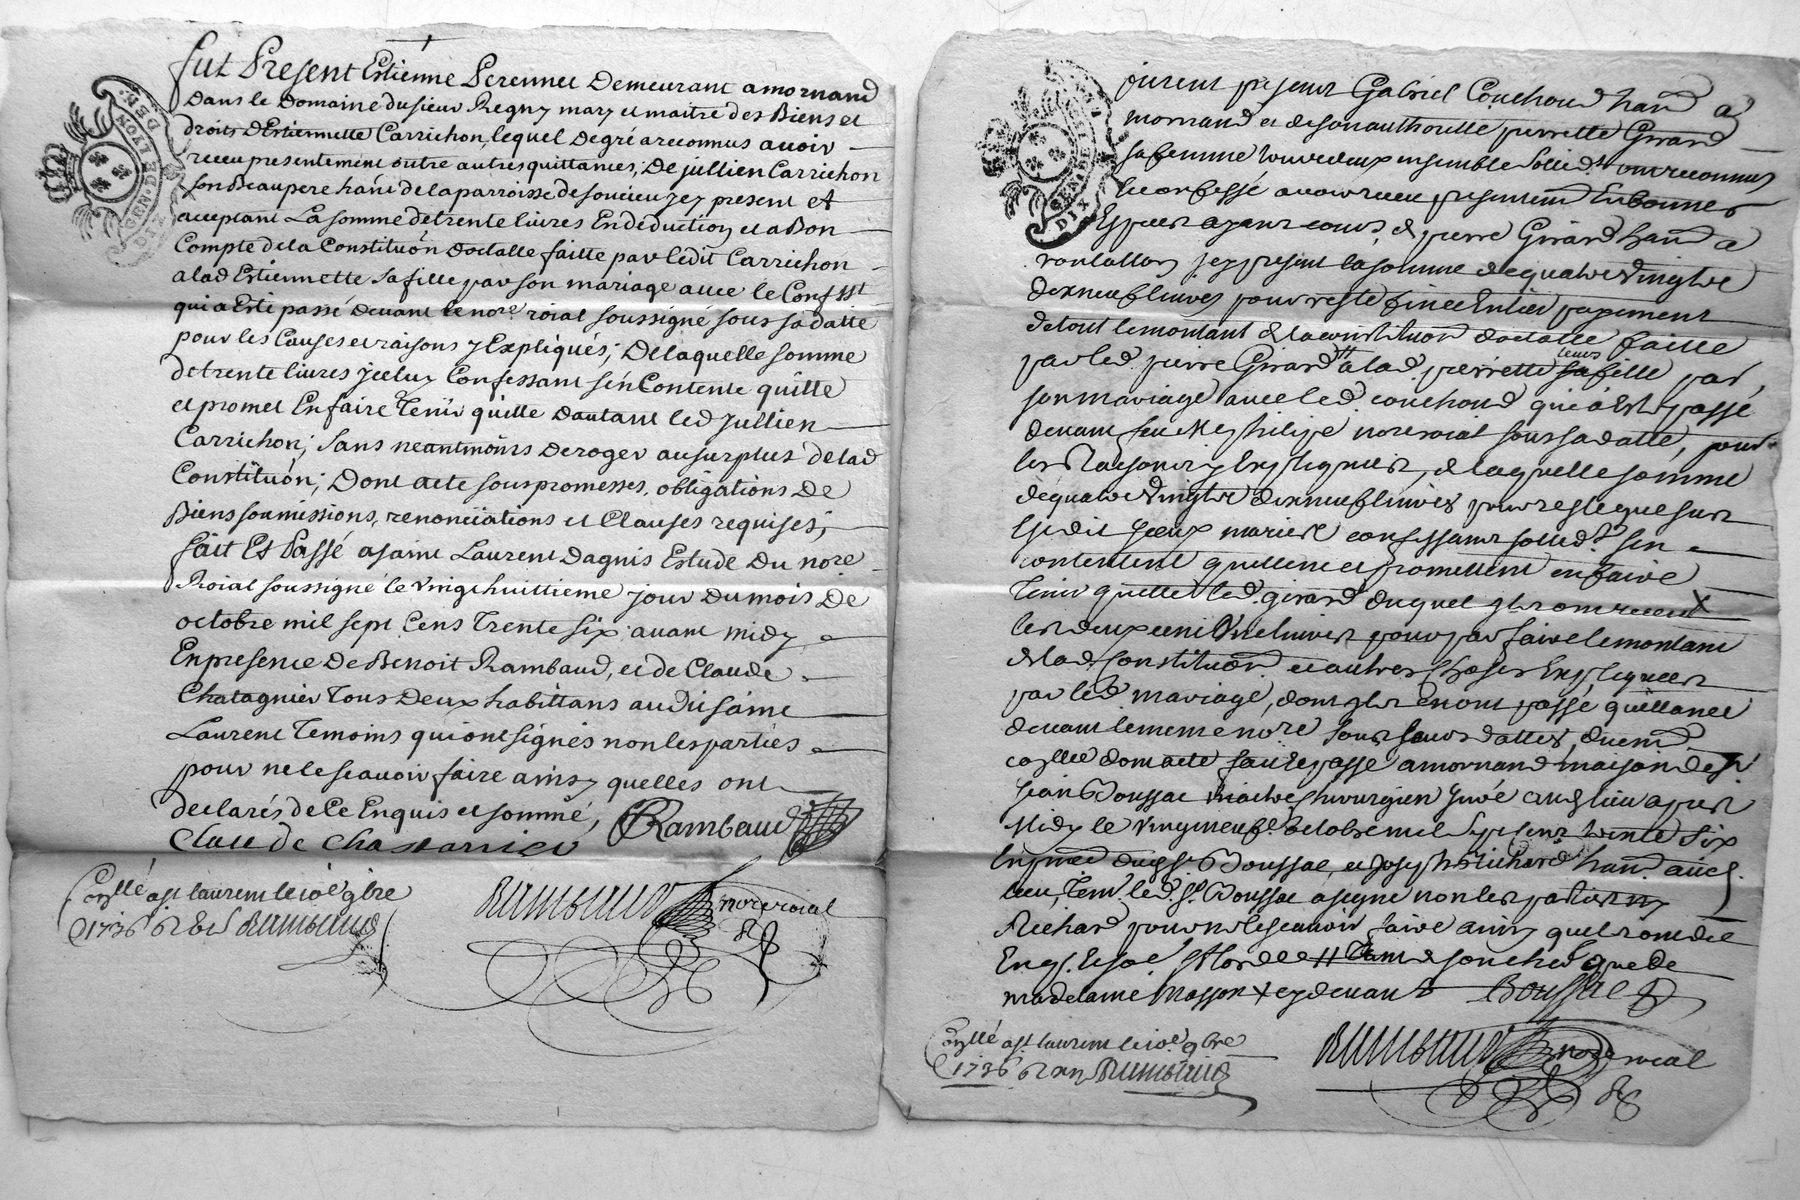 fut Present Estienne Perennet Demeurant a mornand
Dans le Domaine du sieur Regny mary et maitre des Biens et
droits d'Estiennette Carrichon, lequel de gré a reconnus avoir
receu presentement outre autres quittances; De jullien Carrichon
son Beaupere hañt de la parroisse de soucieu jcy present et
acceptant La somme de trente livres En deduction et a Bon
Compte de la Constituôn doctalle faitte par ledit Carrichon
a lad Estiennette sa fille par son mariage avec le Conf.sst
qui a Esté passé devant le nore. roial soussigné sous sa datte
pour les Causes et raisons y Expliqués; De laquelle somme
de trente livres jceluy Confessant s'en Contente quitte
et promet En faire Tenir quitte d'autant led Jullien
Carrichon; sans neantmoins deroger au surplus de lad
Constituôn; Dont acte sous promesses, obligations De
Biens soumissions, renonciations et Clauses requises;
fait Et Passé a saint Laurent Dagnis Estude Du nore
Roial soussigné le vingt huittieme jour du mois De
octobre mil sept Cens Trente six avant midy
En presence De Benoit Rambaud, et de Claude
Chatagnier Tous Deux habittans audit saint
Laurent Temoins qui ont signés non les parties
pour ne le scavoir faire ainsy quelles ont
declarés de Ce Enquis et sommé, Rambaud
Claude Chatanier
Conllé a st laurent le 10e 9bre
1736 Rambaud
Rambaud nore roial
DIX DEN. GENER. DE LYON
furent present Gabriel Couchoud hañt a
mornand et de son authoritté pierrette Girard
sa femme tous deux ensemble sollid.t ont reconnus
et confessé avoir receu presentement En bonnes
Especes ayant cours, de pierre Girard hañt a
rontallon jcy present la somme de quatre vingts
dixneuf livres pour reste fin et Entier payement
de tout le montant de la constituôn doctalle faitte
par led. pierre Girard a lad. pierrette leurs sa fille par
son mariage avec led. couchoud qui a Esté passé
devant feu Me philipe nore roial sous sa datte, pour
les Raisons y Expliquées, de laquelle somme
de quatre vingts dixneuf livres pour reste que sus
Est dit jceux mariés confessants sollid.t s'en
contentent quittent et promettent en faire
Tenir quitte led. girard duquel
les deux cent livres pour parfaire le montant
de lad. constituôn et autres choses Expliquées
par led. mariage, dont ils en ont passé quittance
devant le meme nore sous leurs dattes,
dont acte fait et passé a mornand maison de sr
Jean Boussac maitre chirurgien juré aud lieu apres
Midy le vingt neufe. octobre mil sept cent trente six
En presce dud sr Boussac, et joseph Richard hañt aud.
lieu, Tem. led. sr. Boussac a signé non les parties ny
Richard pour ne le scavoir faire ainsy quels ont dit
Enq. et so.
madelaine Masson + cy devant Boussac
Conllé a st laurent le 10e 9bre
1736 Rambaud
Rambaud nore roial